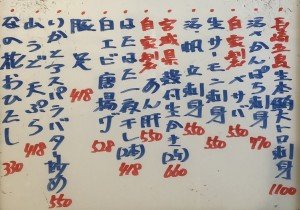 長崎五島生本鮪大トロ刺身 1100
活かんぱち刺身 770
自家製〆サバ 550
生サーモン刺身 550
活帆立刺身 550
宮城県殻付生かき(2ケ) 660
自家製あん肝 550
はたはた一夜干し(2本) 418
白エビ唐揚げ 528
豚足 418
りかエリンギバター炒め 550
山うど天ぷら 418
なの花おひたし 330